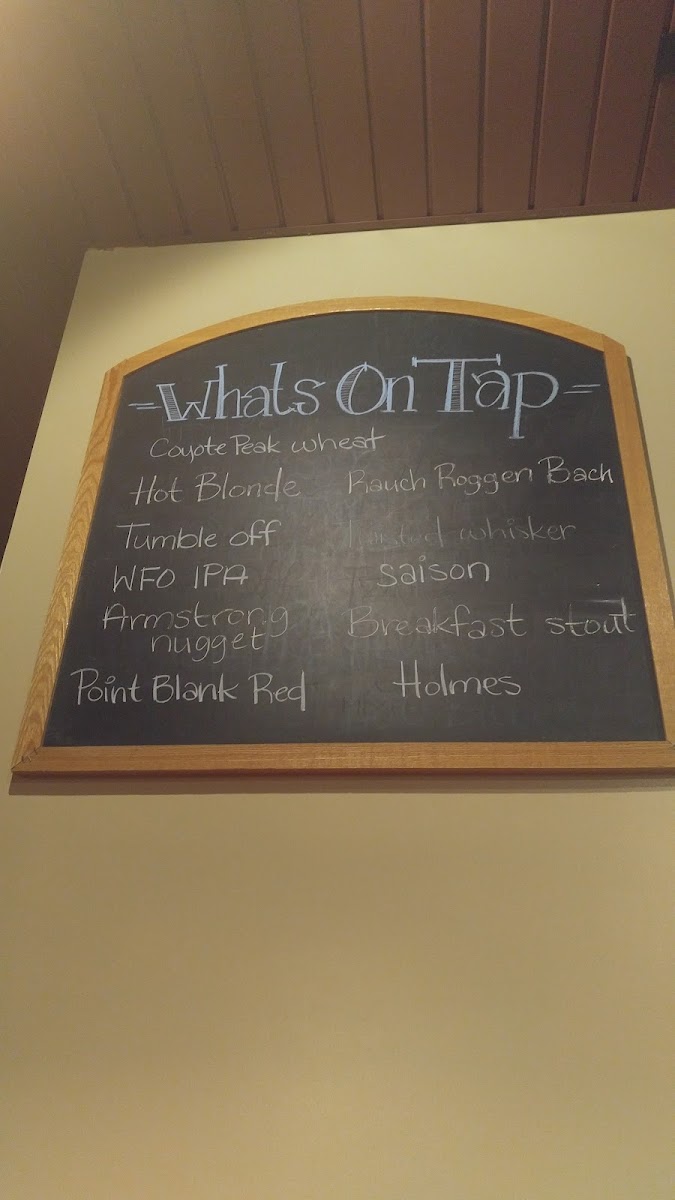 Whats On Tap
Coyote Peak wheat
Hot Blonde
Tumble off
WFO IPA
Armstrong
nugget
Point Blank Red
Rauch Roggen Bach
whisker
saison
Breakfast stout
Holmes